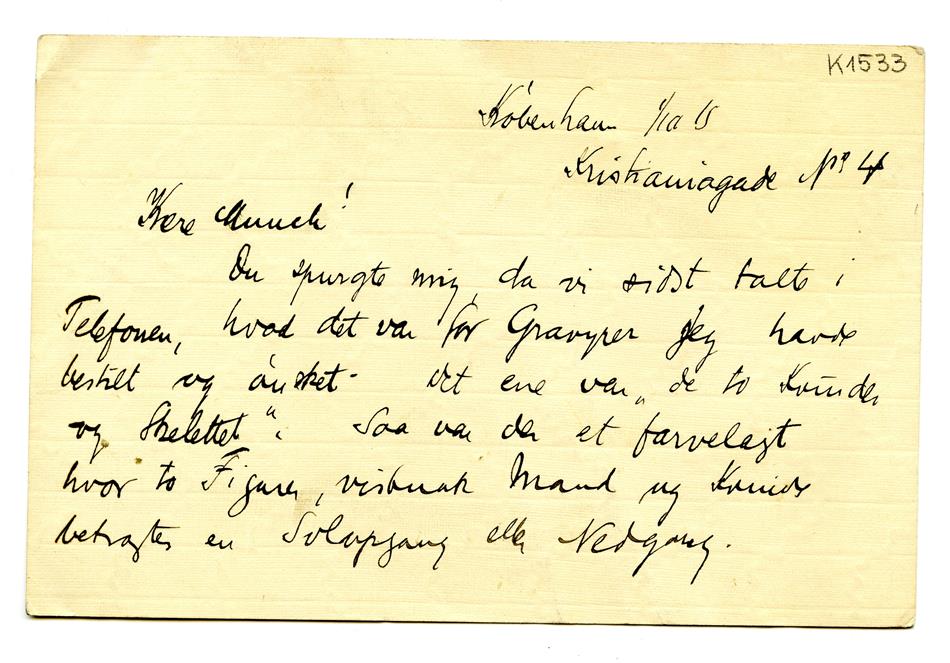 K1533
København 1/10 15
Kristianiagade No 4
Kære Munch!
Du spurgte mig, da vi sidst talte i
Telefonen, hvad det var for Gravyrer jeg havde
bestilt og ønsket - det ene var „de to Kvinder
og Skelettet“. Saa var der et farvelagt
hvor to Figurer, vistnok Mand og Kvinde
betragter en Solopgang eller Nedgang.